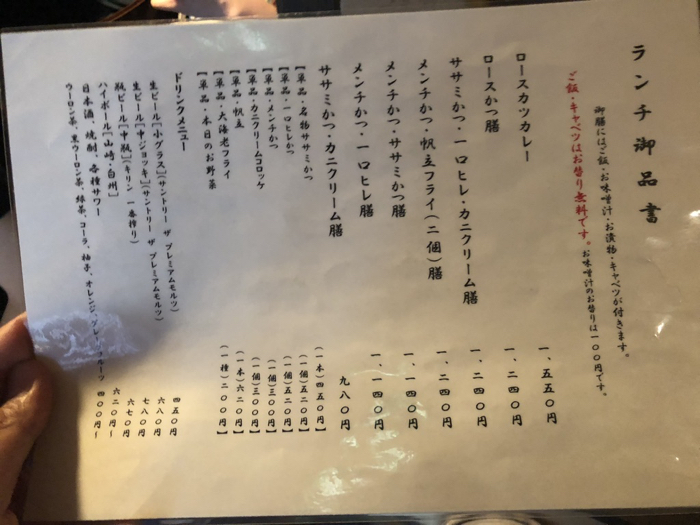 ランチ御品書
御膳にはご飯・お味噌汁・お漬物・キャベツが付きます。
ご飯・キャベツはお替り無料です。お味噌汁のお替りは一〇〇円です。
ロースカツカレー 一、五五〇円
ロースかつ膳 一、二四〇円
ササミかつ・一口ヒレ・カニクリーム膳 一、二四〇円
メンチかつ・帆立フライ(二個)膳 一、二四〇円
メンチかつ・ササミかつ膳 一、一四〇円
メンチかつ・一口ヒレ膳 一、一四〇円
ササミかつ・カニクリーム膳 九八〇円
【単品・名物ササミかつ (一本)四五〇円】
【単品・一口ヒレかつ (一個)五二〇円】
【単品・メンチかつ (一個)五二〇円】
【単品・カニクリームコロッケ (一個)三〇〇円】
【単品・帆立 (一個)三〇〇円】
【単品・大海老フライ (一本)六二〇円】
【単品・本日のお野菜 (一種)二〇〇円】
ドリンクメニュー
生ビール[小グラス](サントリー ザ プレミアムモルツ) 四五〇円
生ビール[中ジョッキ](サントリー ザ プレミアムモルツ) 六八〇円
瓶ビール[中瓶](キリン 一番搾り) 七八〇円
ハイボール[山崎・白州] 六七〇円
日本酒、焼酎、各種サワー 六二〇円〜
ウーロン茶、黒ウーロン茶、緑茶、コーラ、柚子、オレンジ、グレープフルーツ 四〇〇円〜